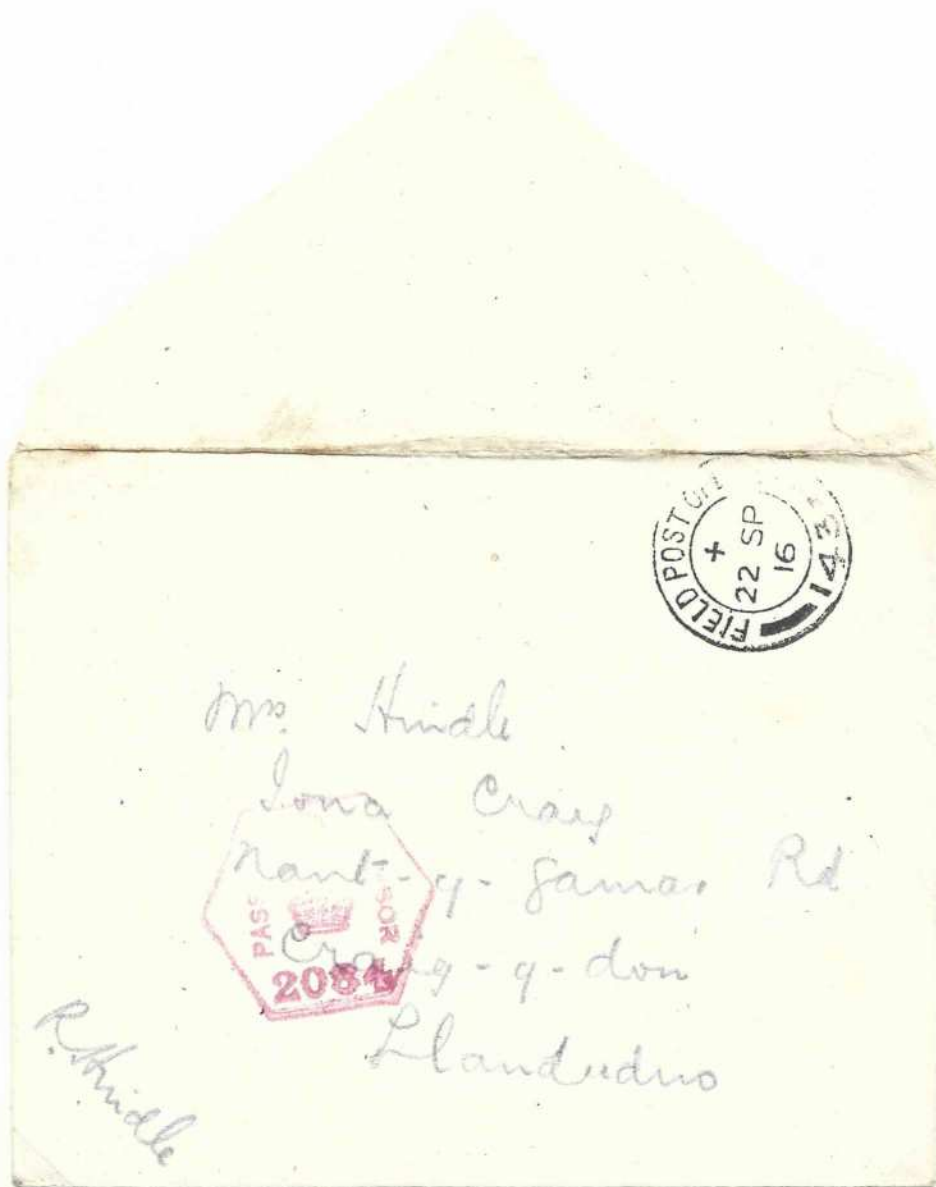 FIELD POST
143
+
22 SP
16
Mrs. Hindle
Iona Craig
Nant-y-Gamar Rd
Craig-y-don
Llandudno
PAS SOR
2084
R. Hindle